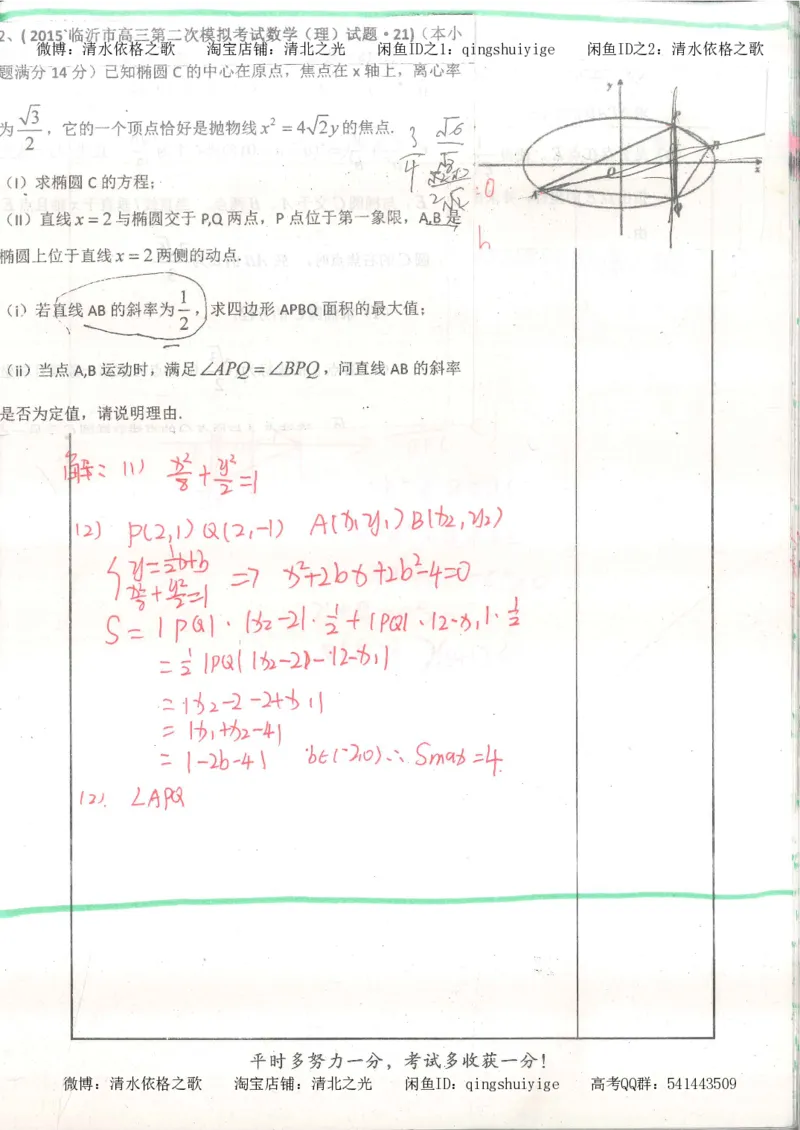 2、( 2015`临沂市高三第二次模拟考试数学（理）试题·21)（本小
微博：清水依格之歌 淘宝店铺：清北之光 闲鱼ID之1：qingshuiyige 闲鱼ID之2：清水依格之歌
题满分 14 分）已知椭圆 C 的中心在原点，焦点在 x 轴上，离心率
为 √3/2 ，它的一个顶点恰好是抛物线 x² = 4√2y 的焦点.
（I）求椭圆 C 的方程；
（II）直线 x = 2 与椭圆交于 P,Q 两点，P 点位于第一象限，A,B 是
椭圆上位于直线 x = 2 两侧的动点.
（i）若直线 AB 的斜率为 1/2 ，求四边形 APBQ 面积的最大值；
（ii）当点 A,B 运动时，满足∠APQ = ∠BPQ，问直线 AB 的斜率
是否为定值，请说明理由.
y
x
O
3/4
=0
b
解：(1) x²/8 + y²/2 = 1
(2) P(2,1) Q(2,-1) A(x₁,y₁) B(x₂,y₂)
{ y = 1/2 x + b
x²/8 + y²/2 = 1 => x² + 2bx + 2b² - 4 = 0
S = |PQ| · |x₂-2| · 1/2 + |PQ| · |2-x₁| · 1/2
= 1/2 |PQ| |(x₂-2) - (2-x₁)|
= |x₂ - 2 - 2 + x₁|
= |x₁ + x₂ - 4|
= |-2b-4| b∈(-2,0) ∴ Smax = 4.
(2). ∠APQ
平时多努力一分，考试多收获一分！
微博：清水依格之歌 淘宝店铺：清北之光 闲鱼ID：qingshuiyige 高考QQ群：541443509